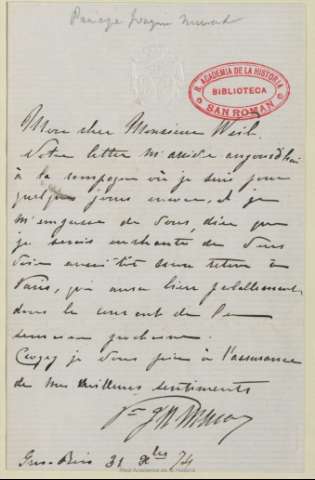 Mon cher Monsieur Weil.
Votre lettre m'arrive aujourd'hui
à la campagne où je suis pour
quelques jours encore, et je
m'empresse de vous dire que
je serais enchanté de vous
voir aussitôt mon retour à
Paris, qui aura lieu probablement
dans le courant de la
semaine prochaine.
Croyez je vous prie à l'assurance
de mes meilleurs sentiments
Pce J N Murat
Gros-Bois 31 Xbre 74
R. ACADEMIA DE LA HISTORIA
BIBLIOTECA
SAN ROMAN
Real Academia de la Historia